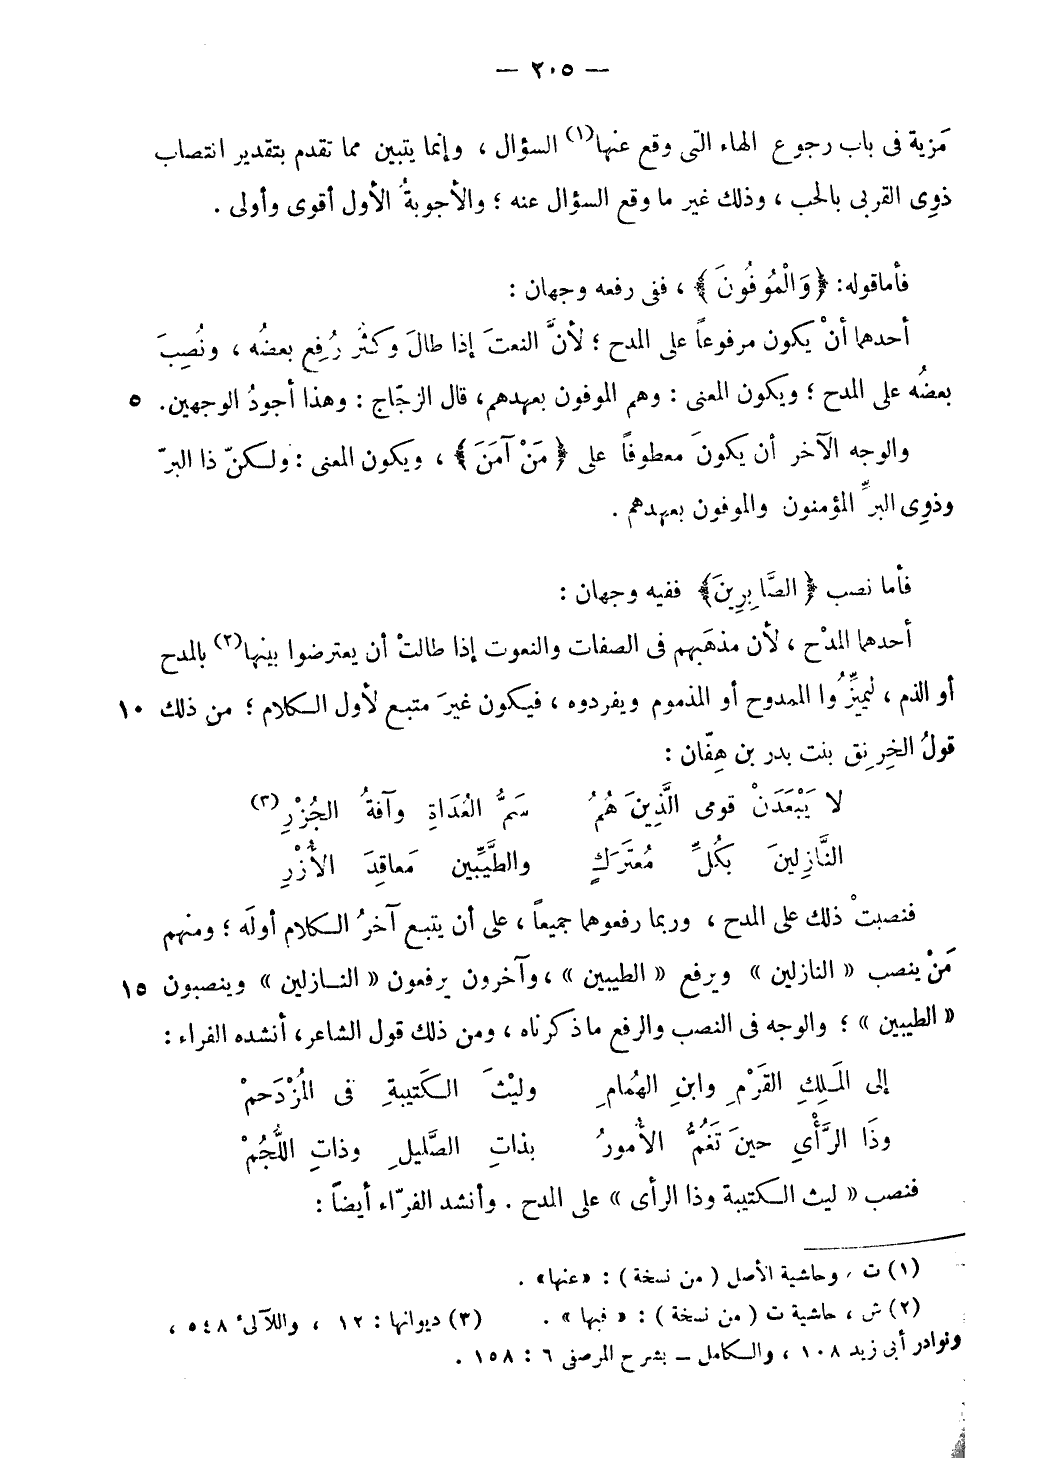 — ٢٠٥ —
مَزية فى باب رجوع الهاء التى وقع عنها(١) السؤال ، وإنما يتبين مما تقدم بتقدير انتصاب
ذوِى القربى بالحب ، وذلك غير ما وقع السؤال عنه ؛ والأجوبةُ الأول أقوى وأولى .
فأما قوله: ﴿وَالْمُوفُونَ﴾ ، ففى رفعه وجهان :
أحدهما أنْ يكون مرفوعاً على المدح ؛ لأنَّ النعتَ إذا طالَ وكثُر رُفِع بعضُه ، ونُصِبَ
بعضُه على المدح ؛ ويكون المعنى : وهم الموفون بعهدهم، قال الزجّاج : وهذا أجودُ الوجهين. ٥
والوجه الآخر أن يكونَ معطوفاً على ﴿مَنْ آمَنَ﴾ ، ويكون المعنى : ولكنّ ذا البرّ
وذوِى البرِّ المؤمنون والموفون بعهدهم .
فأما نصب ﴿الصَّابِرِينَ﴾ ففيه وجهان :
أحدهما المدْح ، لأن مذهَبهم فى الصفات والنعوت إذا طالتْ أن يعترضوا بينها(٢) بالمدح
أو الذم ، ليميِّزُوا الممدوح أو المذموم ويفردوه ، فيكون غيرَ متبع لأول الكلام ؛ من ذلك ١٠
قولُ الخِرنِق بنت بدر بن هِفّان :
لا يَبْعَدَنْ قومى الَّذِينَ هُمُ سَمُّ العُدَاةِ وآفةُ الجُزْرِ(٣)
النَّازِلِينَ بكُلِّ مُعتَرَكٍ والطَّيِّبِين مَعاقِدَ الأُزْرِ
فنصبتْ ذلك على المدح ، وربما رفعوهما جميعاً ، على أن يتبع آخرُ الكلام أولَه ؛ ومنهم
مَنْ ينصب « النازلين » ويرفع « الطيبين » ، وآخرون يرفعون « النازلين » وينصبون ١٥
« الطيبين » ؛ والوجه فى النصب والرفع ما ذكرناه ، ومن ذلك قول الشاعر، أنشده الفراء :
إلى المَلِكِ القَرْمِ وابنِ الهُمامِ وليْثَ الكَتيبةِ فى المُزْدَحمْ
وذَا الرَّأْىِ حينَ تَغُمُّ الأُمورُ بذاتِ الصَّليلِ وذاتِ اللُّجُمْ
فنصب « ليث الكتيبة وذا الرأى » على المدح . وأنشد الفرّاء أيضاً :
(١) ت ، وحاشية الأصل ( من نسخة ) : «عنها» .
(٢) ش ، حاشية ت ( من نسخة ) : « فيها » . (٣) ديوانها : ١٢ ، واللآلئ ٥٤٨ ،
ونوادر أبى زيد ١٠٨ ، والكامل ــ بشرح المرصفى ٦ : ١٥٨ .